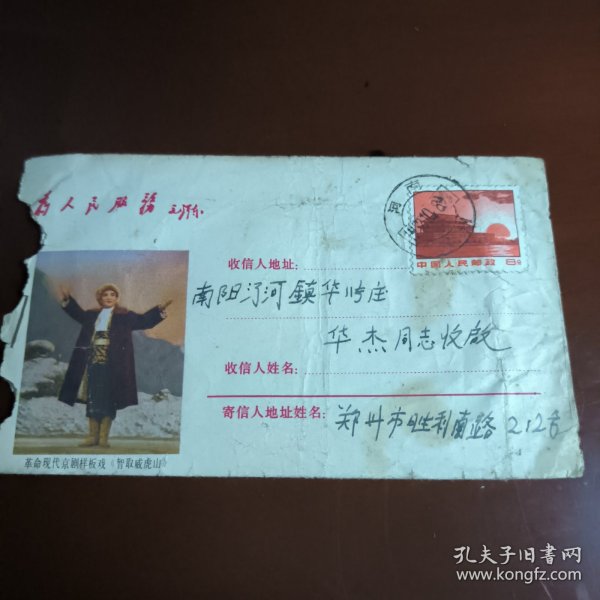 为人民服務
毛泽东
河南
中国人民邮政 8分
收信人地址:
南阳 河鎮华 庄
华杰同志收啟
收信人姓名:
寄信人地址姓名:
郑州市胜利南路212号
革命现代京剧样板戏《智取威虎山》
孔夫子旧书网
www.kongfz.com